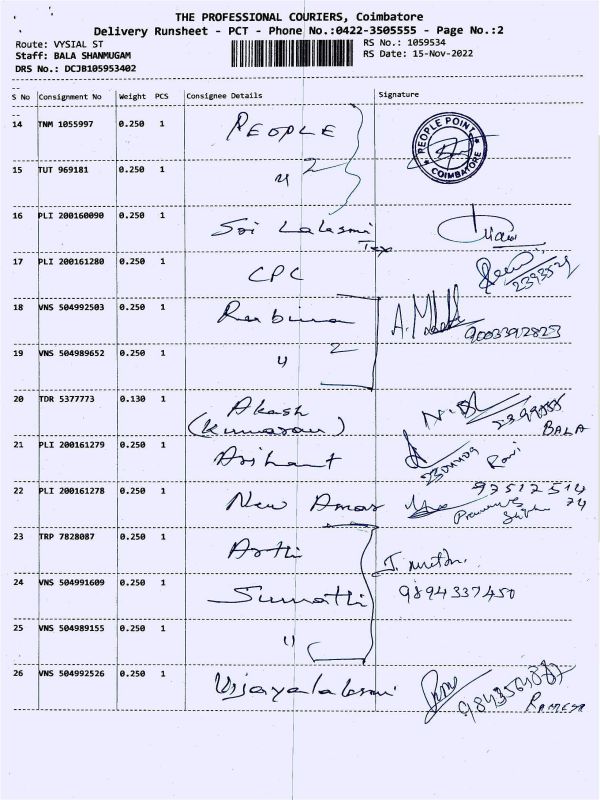 THE PROFESSIONAL COURIERS, Coimbatore
Delivery Runsheet - PCT - Phone No.:0422-3505555 - Page No.:2
Route: VYSIAL ST RS No.: 1059534
Staff: BALA SHANMUGAM RS Date: 15-Nov-2022
DRS No.: DCJB105953402
S No Consignment No Weight PCS Consignee Details Signature
14 TNM 1055997 0.250 1 PEOPLE PEOPLE POINT COIMBATORE
15 TUT 969181 0.250 1 " 2
16 PLI 200160090 0.250 1 Sri Lalaxmi Tex
17 PLI 200161280 0.250 1 CPC
18 VNS 504992503 0.250 1 Rubina 9003392823
19 VNS 504989652 0.250 1 " 2
20 TDR 5377773 0.130 1 Akash (Kumaran) BALA
21 PLI 200161279 0.250 1 Arihant Ravi
22 PLI 200161278 0.250 1 New Amar 97512514 74
23 TRP 7828087 0.250 1 Arthi
24 VNS 504991609 0.250 1 Sumathi 9894337450
25 VNS 504989155 0.250 1 "
26 VNS 504992526 0.250 1 Vijayalalaxmi RAMESH